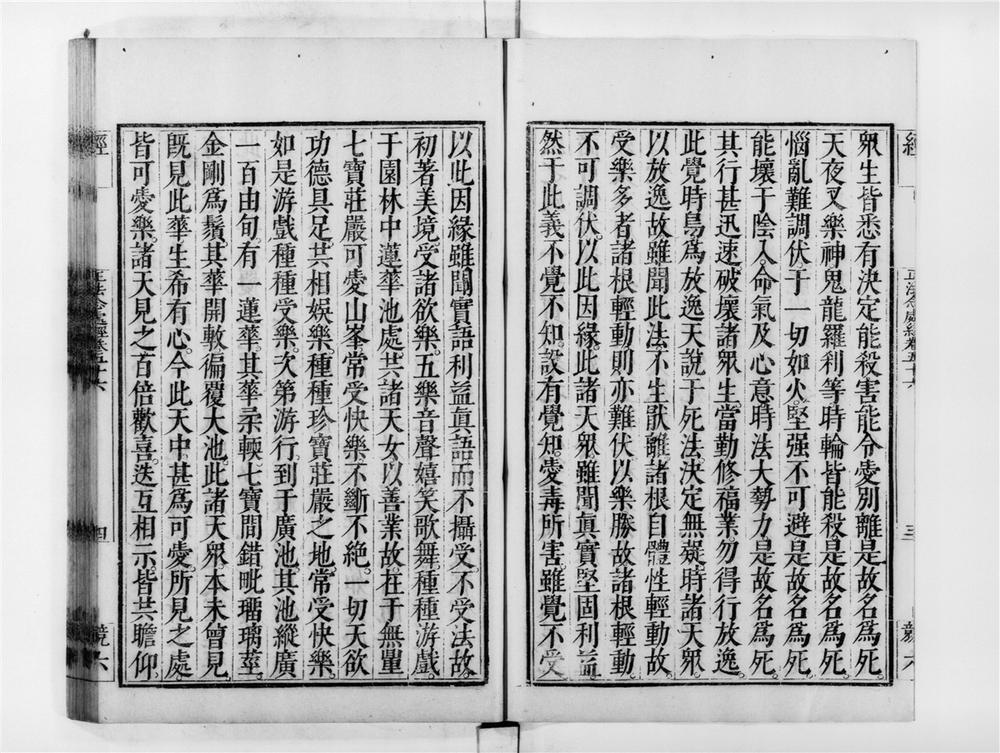 眾生皆悉有決定能殺害能令愛別離是故名爲死。
天夜叉樂神鬼龍羅刹等時輪皆能殺。是故名爲死。
惱亂難調伏于一切如火。堅强不可避是故名爲死。
能壞于陰入。命氣及心意。時法大勢力是故名爲死。
其行甚迅速。破壞諸眾生。當勤修福業。勿得行放逸。
此覺時鳥爲放逸天說于死法。決定無疑。時諸天眾。
以放逸故雖聞此法。不生厭離。諸根自體性輕動故。
受樂多者諸根輕動。則亦難伏。以樂勝故諸根輕動。
不可調伏。以此因緣。此諸天眾。雖聞眞實堅固利益
然于此義不覺不知。設有覺知。愛毒所害。雖覺不受
以此因緣。雖聞實語利益眞語。而不攝受。不受法故。
初著美境。受諸欲樂。五樂音聲嬉笑歌舞。種種游戲。
于園林中蓮華池處。共諸天女。以善業故。在于無量
七寶莊嚴可愛山峯。常受快樂不斷不絕。一切天欲
功德具足。共相娛樂。種種珍寶莊嚴之地。常受快樂。
如是游戲種種受樂。次第游行。到于廣池。其池縱廣
一百由旬。有一蓮華。其華柔輭。七寶間錯。毗瑠璃莖。
金剛爲鬚。其華開敷徧覆大池。此諸天眾。本未曾見。
旣見此華。生希有心。今此天中。甚爲可愛。所見之處。
皆可愛樂。諸天見之百倍歡喜。迭互相示。皆共瞻仰。
經
正法念處經卷五十六
三
經
正法念處經卷五十六
四
競六